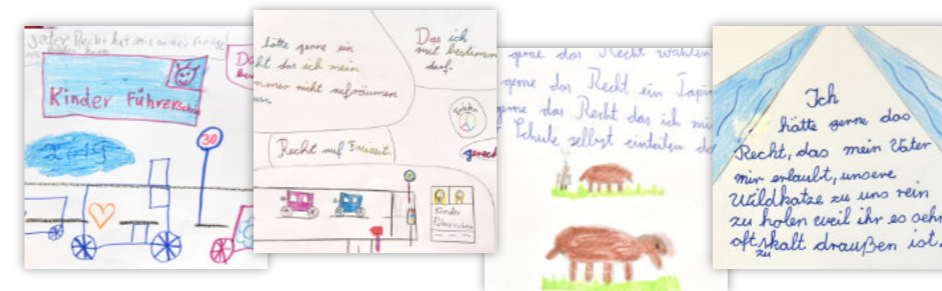 Kinder Führersch
30
hätte gerne ein
ht das ich mein
mmer nicht aufräumen
Das ich
mit bestimmen
darf.
Recht auf Freizeit.
gerech
Kinder
Führerschein
gerne das Recht wählen
gerne das Recht ein Tapir
gerne das Recht das ich mi
Schule selbst einteilen da
Ich
hätte gerne das
Recht, das mein Vater
mir erlaubt, unsere
Wildkatze zu uns rein
zu holen weil ihr es sehr
oft zu kalt draußen ist.